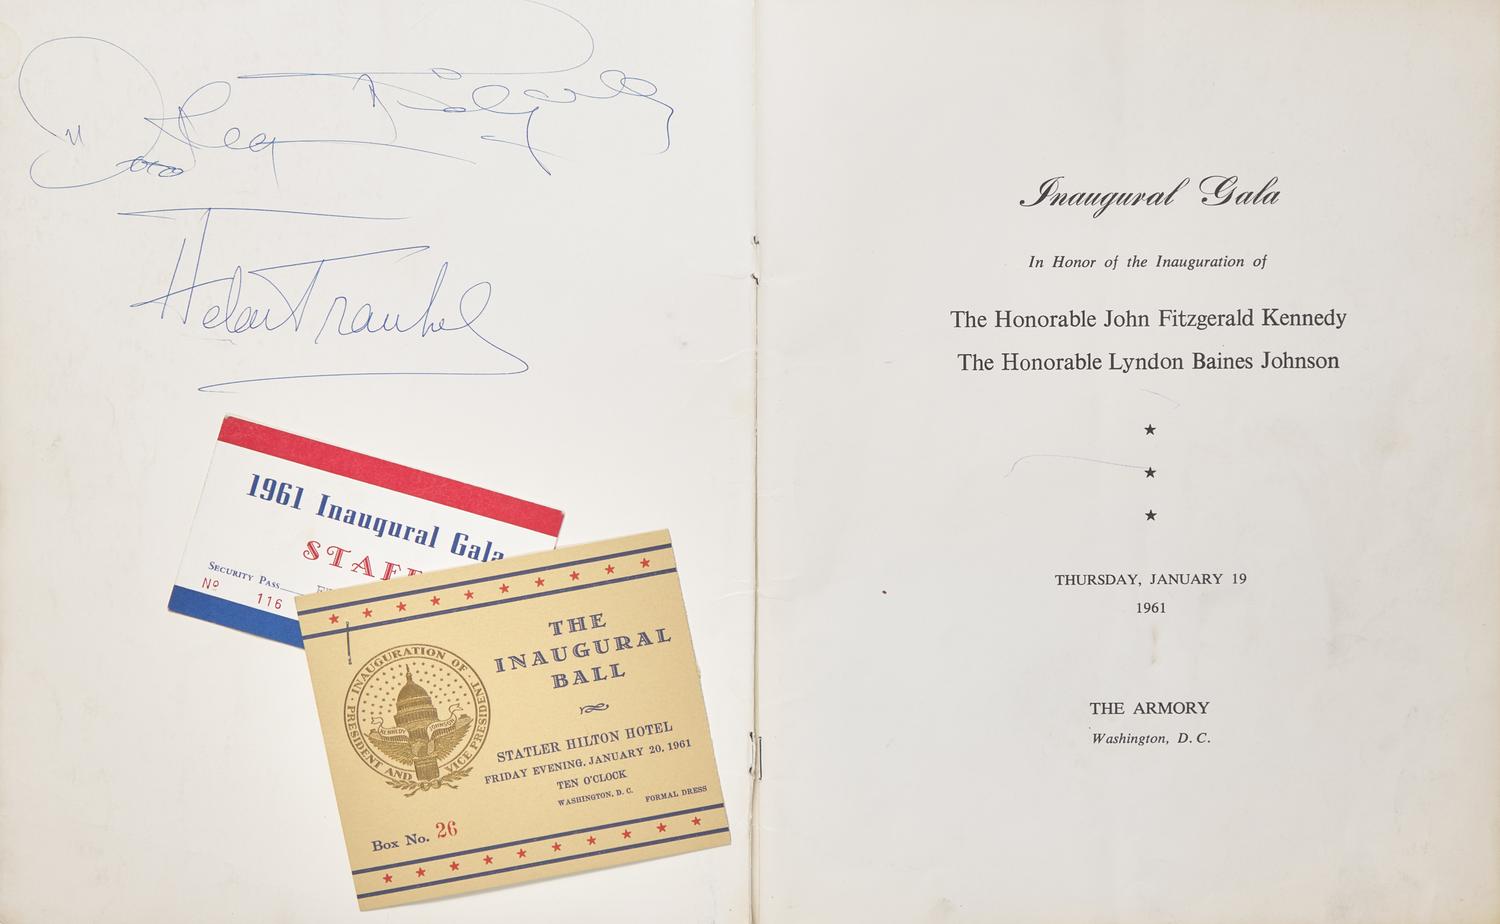 Helen Traubel
1961 Inaugural Gala
STAFF
SECURITY PASS
Nº 116
THE
INAUGURAL
BALL
INAUGURATION OF PRESIDENT AND VICE PRESIDENT
KENNEDY JOHNSON
STATLER HILTON HOTEL
FRIDAY EVENING, JANUARY 20, 1961
TEN O'CLOCK
WASHINGTON, D. C. FORMAL DRESS
Box No. 26
Inaugural Gala
In Honor of the Inauguration of
The Honorable John Fitzgerald Kennedy
The Honorable Lyndon Baines Johnson
THURSDAY, JANUARY 19
1961
THE ARMORY
Washington, D. C.